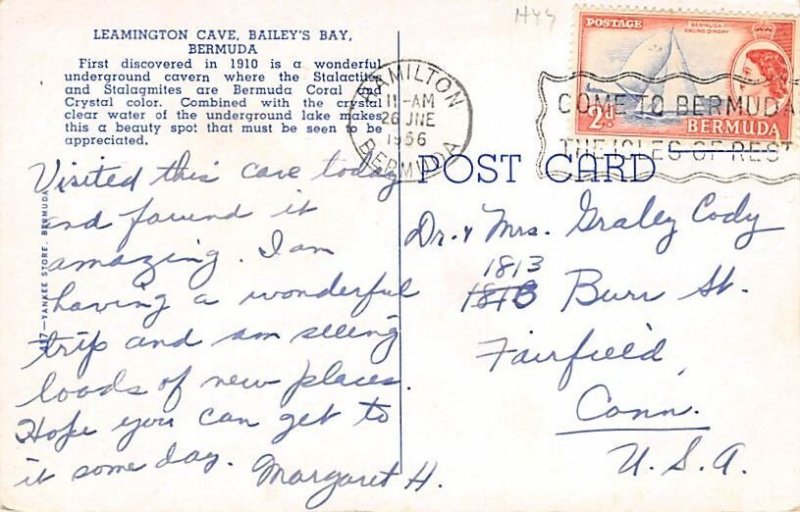 LEAMINGTON CAVE, BAILEY'S BAY,
BERMUDA
First discovered in 1910 is a wonderful
underground cavern where the Stalactites
and Stalagmites are Bermuda Coral and
Crystal color. Combined with the crystal
clear water of the underground lake makes
this a beauty spot that must be seen to be
appreciated.
Visited this cave today
and found it
amazing. I am
having a wonderful
trip and am seeing
loads of new places.
Hope you can get to
it some day. Margaret H.
YANKEE STORE, BERMUDA
HAMILTON
11-AM
26 JNE
1956
BERMUDA
POSTAGE
BERMUDA
RACING DINGHY
2d
BERMUDA
COME TO BERMUDA
THE ISLES OF REST
POST CARD
Dr. & Mrs. Graley Cody
1813
1818 Burr St.
Fairfield
Conn.
U.S.A.